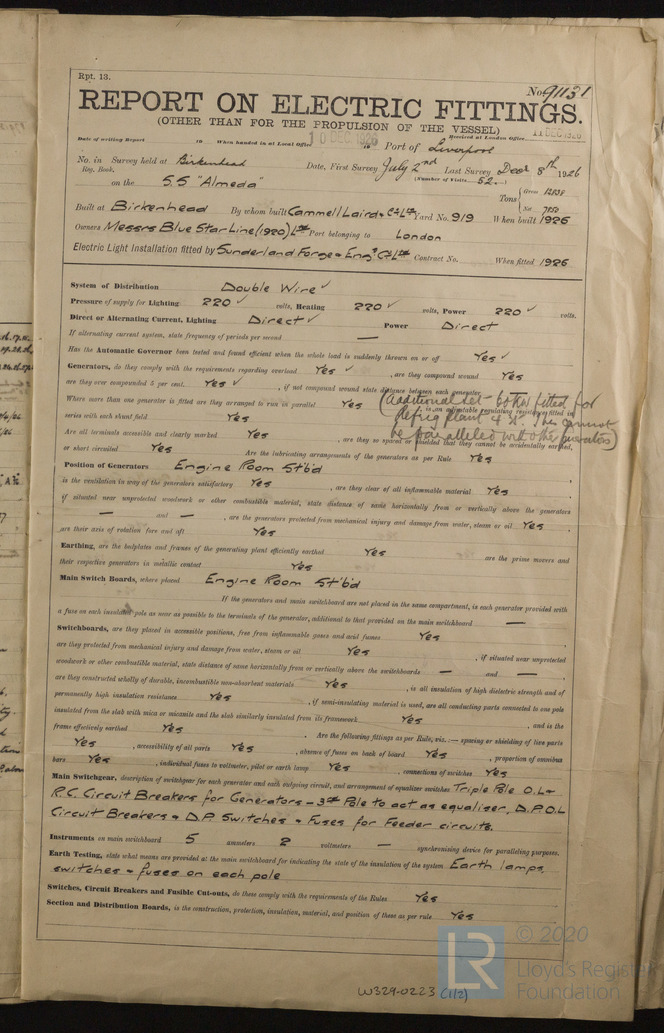 Rpt. 13.
No. 91131
REPORT ON ELECTRIC FITTINGS.
(OTHER THAN FOR THE PROPULSION OF THE VESSEL)
Received at London Office 11 DEC 1926
Date of writing Report 19 When handed in at Local Office 10 DEC 1926 19 Port of Liverpool
No. in Reg. Book. Survey held at Birkenhead Date, First Survey July 2nd Last Survey Decr 8th 1926
(Number of Visits 52.)
on the S.S "Almeda" Tons { Gross 12838
Net 7850
Built at Birkenhead By whom built Cammell Laird & Co Ltd Yard No. 919 When built 1926
Owners Messrs Blue Star Line (1920) Ltd Port belonging to London
Electric Light Installation fitted by Sunderland Forge & Engg Co Ltd Contract No. When fitted 1926
System of Distribution Double Wire ✓
Pressure of supply for Lighting 220 ✓ volts, Heating 220 ✓ volts, Power 220 ✓ volts.
Direct or Alternating Current, Lighting Direct ✓ Power Direct
If alternating current system, state frequency of periods per second —
Has the Automatic Governor been tested and found efficient when the whole load is suddenly thrown on or off Yes ✓
Generators, do they comply with the requirements regarding overload Yes ✓, are they compound wound Yes
are they over compounded 5 per cent. Yes ✓, if not compound wound state distance between each generator
Where more than one generator is fitted are they arranged to run in parallel Yes, is an adjustable regulating resistance fitted in
(additional set
fitted for
Refrig plant
cannot
be paralleled with other generators)
series with each shunt field Yes
Are all terminals accessible and clearly marked Yes, are they so spaced or shielded that they cannot be accidentally earthed,
or short circuited Yes Are the lubricating arrangements of the generators as per Rule Yes
Position of Generators Engine Room St'b'd
is the ventilation in way of the generators satisfactory Yes, are they clear of all inflammable material Yes,
if situated near unprotected woodwork or other combustible material, state distance of same horizontally from or vertically above the generators
— and —, are the generators protected from mechanical injury and damage from water, steam or oil Yes,
are their axis of rotation fore and aft Yes
Earthing, are the bedplates and frames of the generating plant efficiently earthed Yes are the prime movers and
their respective generators in metallic contact Yes
Main Switch Boards, where placed Engine Room St'b'd
If the generators and main switchboard are not placed in the same compartment, is each generator provided with
a fuse on each insulated pole as near as possible to the terminals of the generator, additional to that provided on the main switchboard —
Switchboards, are they placed in accessible positions, free from inflammable gases and acid fumes Yes,
are they protected from mechanical injury and damage from water, steam or oil Yes, if situated near unprotected
woodwork or other combustible material, state distance of same horizontally from or vertically above the switchboards — and —,
are they constructed wholly of durable, incombustible non-absorbent materials Yes, is all insulation of high dielectric strength and of
permanently high insulation resistance Yes, if semi-insulating material is used, are all conducting parts connected to one pole
insulated from the slab with mica or micanite and the slab similarly insulated from its framework Yes, and is the
frame effectively earthed Yes. Are the following fittings as per Rule, viz.:— spacing or shielding of live parts
Yes, accessibility of all parts Yes, absence of fuses on back of board Yes, proportion of omnibus
bars Yes, individual fuses to voltmeter, pilot or earth lamp Yes, connections of switches Yes
Main Switchgear, description of switchgear for each generator and each outgoing circuit, and arrangement of equaliser switches Triple Pole O.L &
R.C. Circuit Breakers for Generators – 3rd Pole to act as equaliser, D.P.O.L
Circuit Breakers & D.P. Switches & Fuses for Feeder circuits.
Instruments on main switchboard 5 ammeters 2 voltmeters — synchronising device for paralleling purposes.
Earth Testing, state what means are provided at the main switchboard for indicating the state of the insulation of the system Earth lamps,
switches & fuses on each pole
Switches, Circuit Breakers and Fusible Cut-outs, do these comply with the requirements of the Rules Yes
Section and Distribution Boards, is the construction, protection, insulation, material, and position of these as per rule Yes
© 2020
LR
Lloyd's Register
Foundation
W329-0223 (1/2)